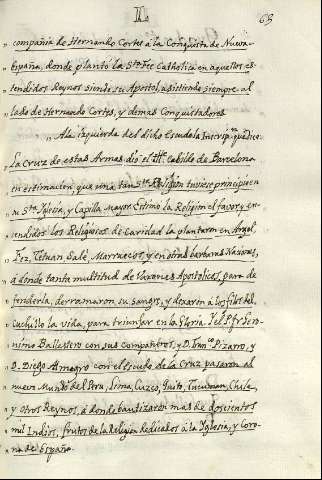 IL 63
compañia de Hernando Cortes á la Conquista de Nueva
España, donde plantó la Sta. Fee Catholica en aquellos es-
tendidos Reynos siendo su Apostol, asistiendo siempre al
lado de Hernando Cortes, y demas Conquistadores
A la izquierda del dicho Escudo la Inscripn. que dice
La Cruz de estas Armas dió el Cabildo de Barcelona
en estimacion, que una tan Sta. Religion tuviese principio en
su Sta. Iglesia, y Capilla Mayor. Estimó la Religion el favor, y en-
tendidos los Religiosos de Caridad la plantaron en Argel,
Fez, Tetuan Salé Marruecos, y en otras barbaras Naciones,
á donde tanta multitud de Varones Apostolicos, para de-
fenderla, derramaron su sangre, y dexaron á los filos del
Cuchillo la vida, para triunfar en la Gloria. Y el P. fr. Gero-
nimo Ballestero con sus compañeros, y D. Franco. Pizarro, y
D. Diego Almagro con el Escudo de la Cruz pasaron al
nuevo Mundo del Peru, Lima, Cuzco, Quito, Tucuman, Chile,
y otros Reynos, á donde bautizaron mas de doscientos
mil Indios, frutos de la Religion dedicados á la Iglesia, y Coro-
na de España.